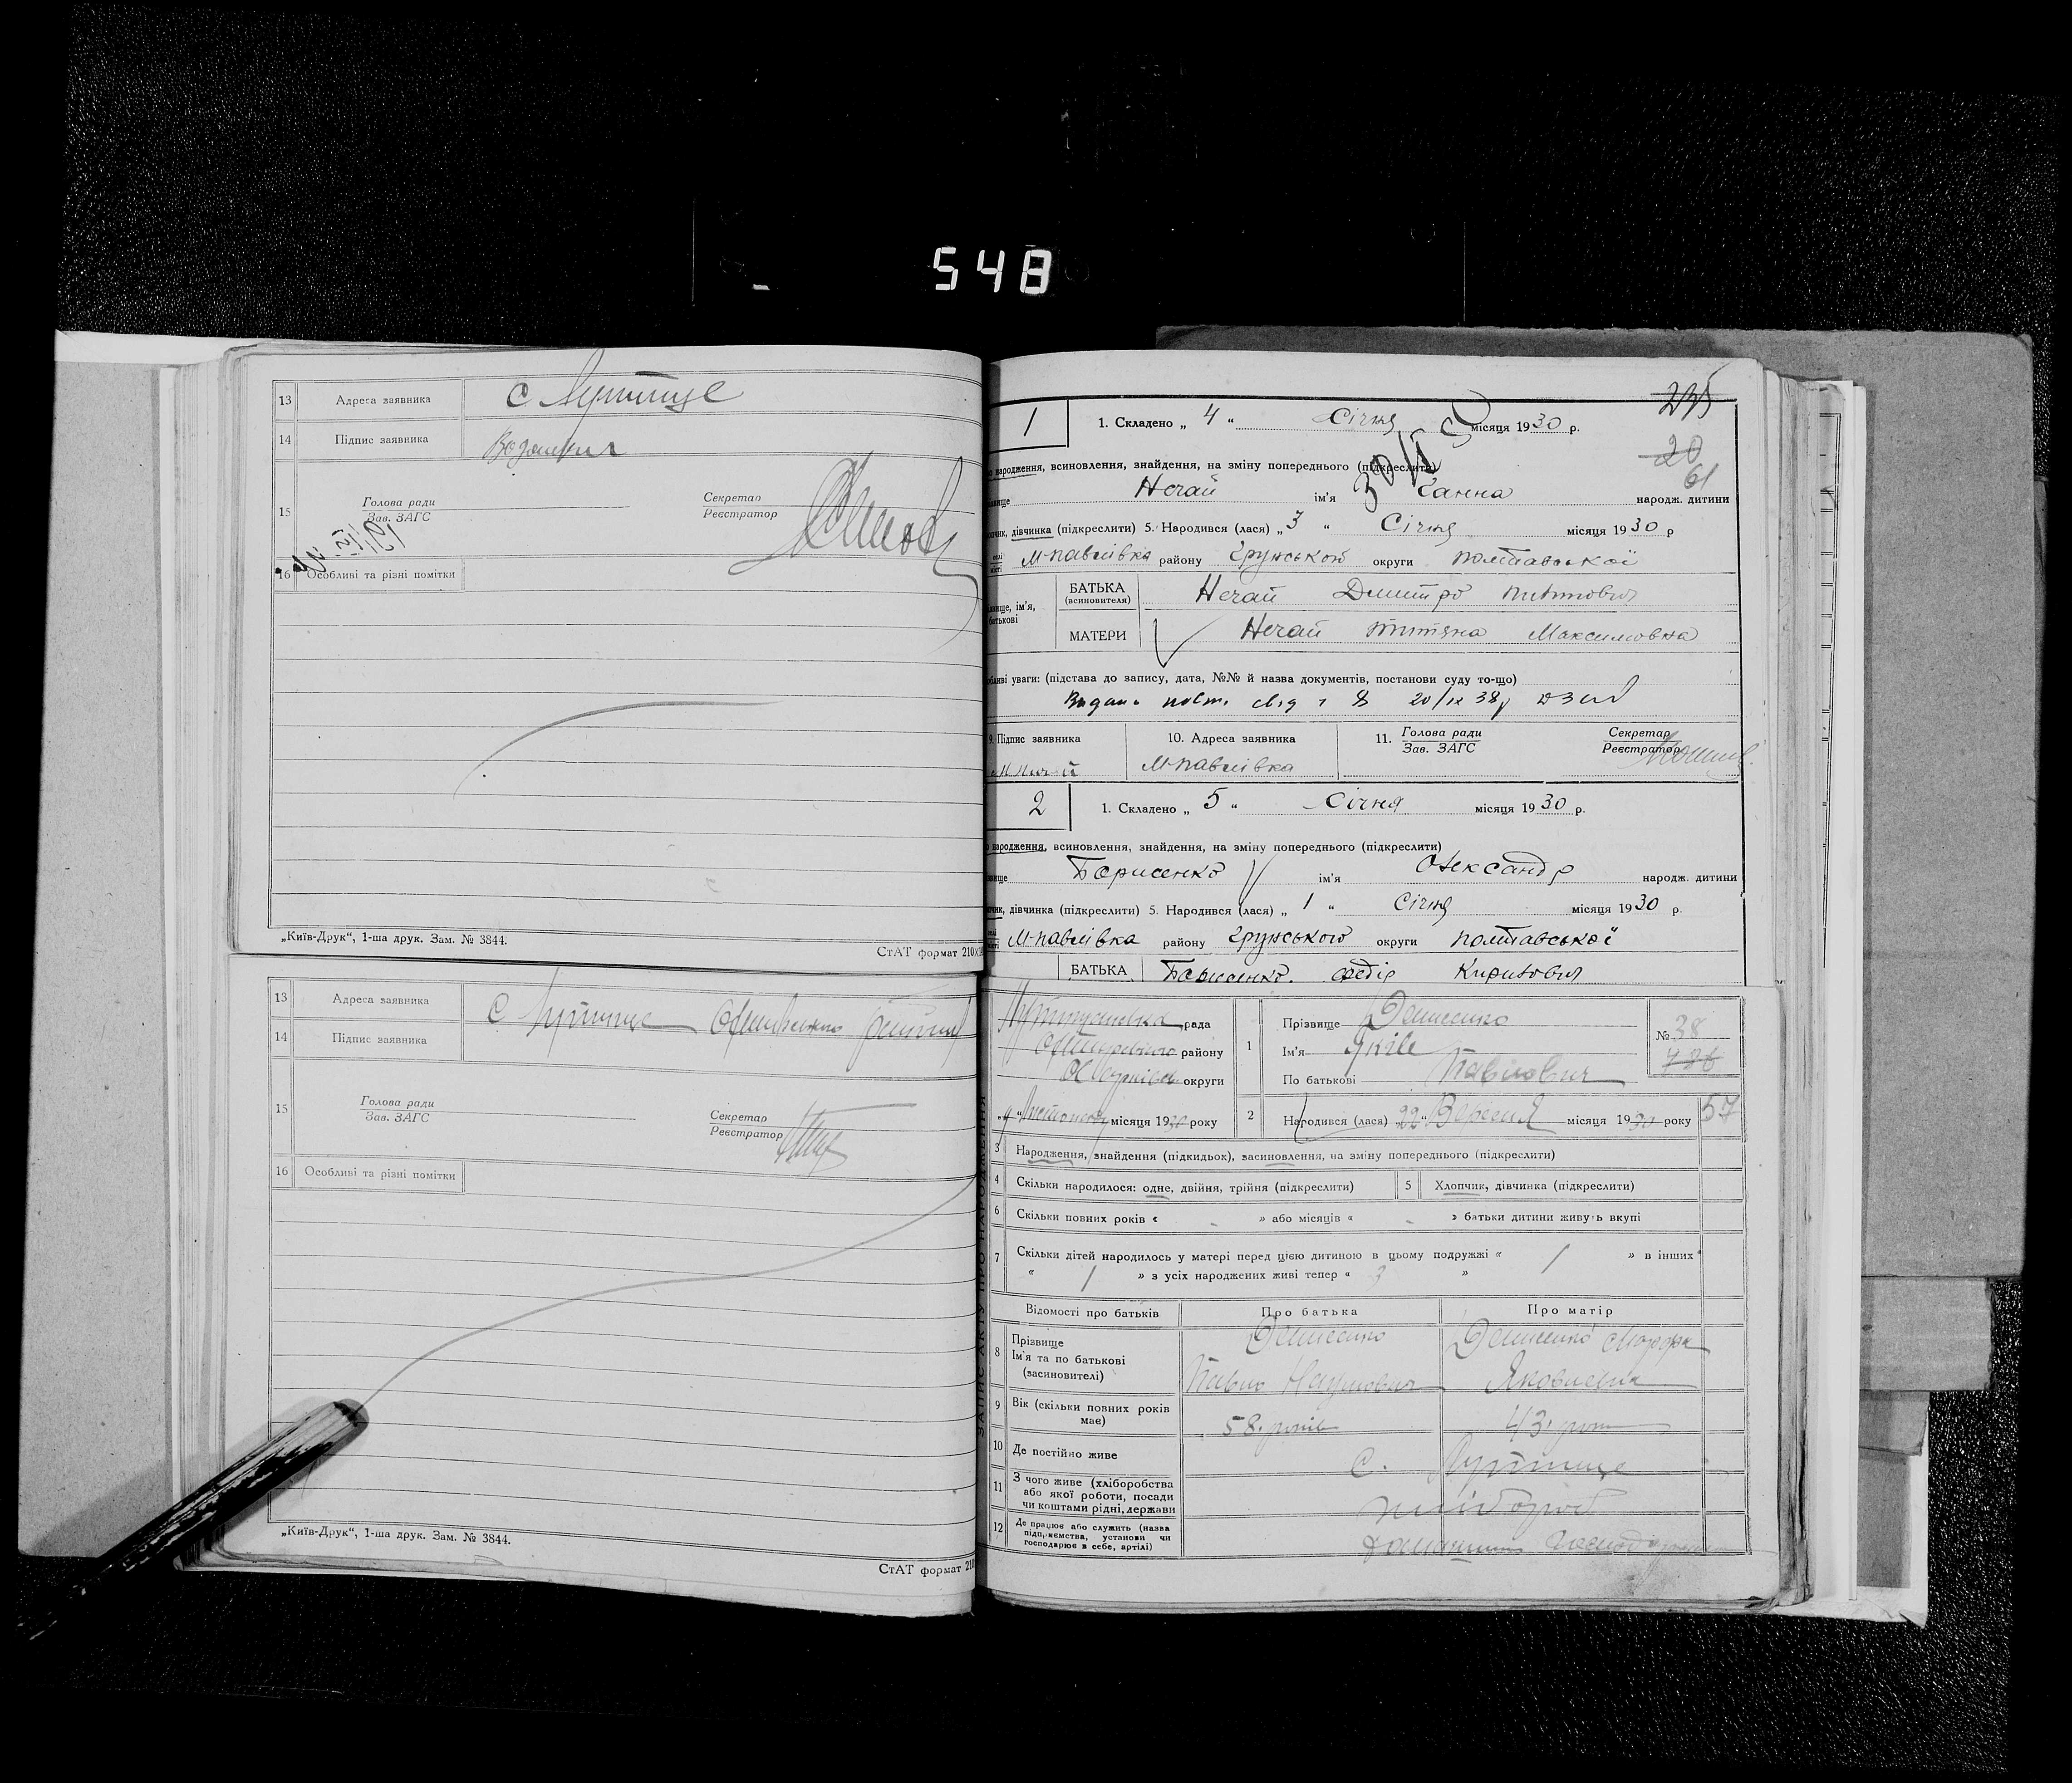 548
13 Адреса заявника с Лутище
14 Підпис заявника
15 Голова ради Зав. ЗАГС Секретар Реєстратор
16 Особливі та різні помітки
„Київ-Друк“, 1-ша друк. Зам. № 3844.
СтАТ формат 210
13 Адреса заявника с Лутище
14 Підпис заявника
15 Голова ради Зав. ЗАГС Секретар Реєстратор
16 Особливі та різні помітки
„Київ-Друк“, 1-ша друк. Зам. № 3844.
СтАТ формат 210
235
1 1. Складено „ 4 “ Січня місяця 1930 р.
20
61
народження, всиновлення, знайдення, на зміну попереднього (підкреслити)
Нечай ім'я Ганна народж. дитини
дівчинка (підкреслити) 5. Народився (лася) „ 3 “ Січня місяця 1930 р
М-Павлівка району Грунського округи Полтавської
БАТЬКА (всиновителя) Нечай Дмитро
МАТЕРИ Нечай Титяна Максимовна
уваги: (підстава до запису, дата, №№ й назва документів, постанови суду то-що)
20/IX 38р
9. Підпис заявника 10. Адреса заявника 11. Голова ради Зав. ЗАГС Секретар Реєстратор
М-Павлівка
2 1. Складено „ 5 “ Січня місяця 1930 р.
народження, всиновлення, знайдення, на зміну попереднього (підкреслити)
Борисенко ім'я Олександр народж. дитини
дівчинка (підкреслити) 5. Народився (лася) „ 1 “ Січня місяця 1930 р.
М-Павлівка району Грунського округи Полтавської
БАТЬКА Борисенко Федір Кирилович
рада
району
округи
місяця 1930 року
1 Прізвище Денисенко
Ім'я Яків
По батькові Павлович
№ 38
2 Народився (лася) „22“ Вересня місяця 1930 року 57
ЗАПИС АКТУ ПРО НАРОДЖЕННЯ
3 Народження, знайдення (підкидьок), засиновлення, на зміну попереднього (підкреслити)
4 Скільки народилося: одне, двійня, трійня (підкреслити) 5 Хлопчик, дівчинка (підкреслити)
6 Скільки повних років « - » або місяців « - » батьки дитини живуть вкупі
7 Скільки дітей народилось у матері перед цією дитиною в цьому подружжі « 1 » в інших
« 1 » з усіх народжених живі тепер « 3 »
Відомості про батьків Про батька Про матір
8 Прізвище Ім'я та по батькові (засиновителі) Денисенко Павло Наумович Денисенко Мотря Яковлевна
9 Вік (скільки повних років має) 58 років 43 роки
10 Де постійно живе с. Лутище
11 З чого живе (хліборобства або якої роботи, посади чи коштами рідні, держави хлібороб
12 Де працює або служить (назва підприємства, установи чи господарює в себе, артілі)